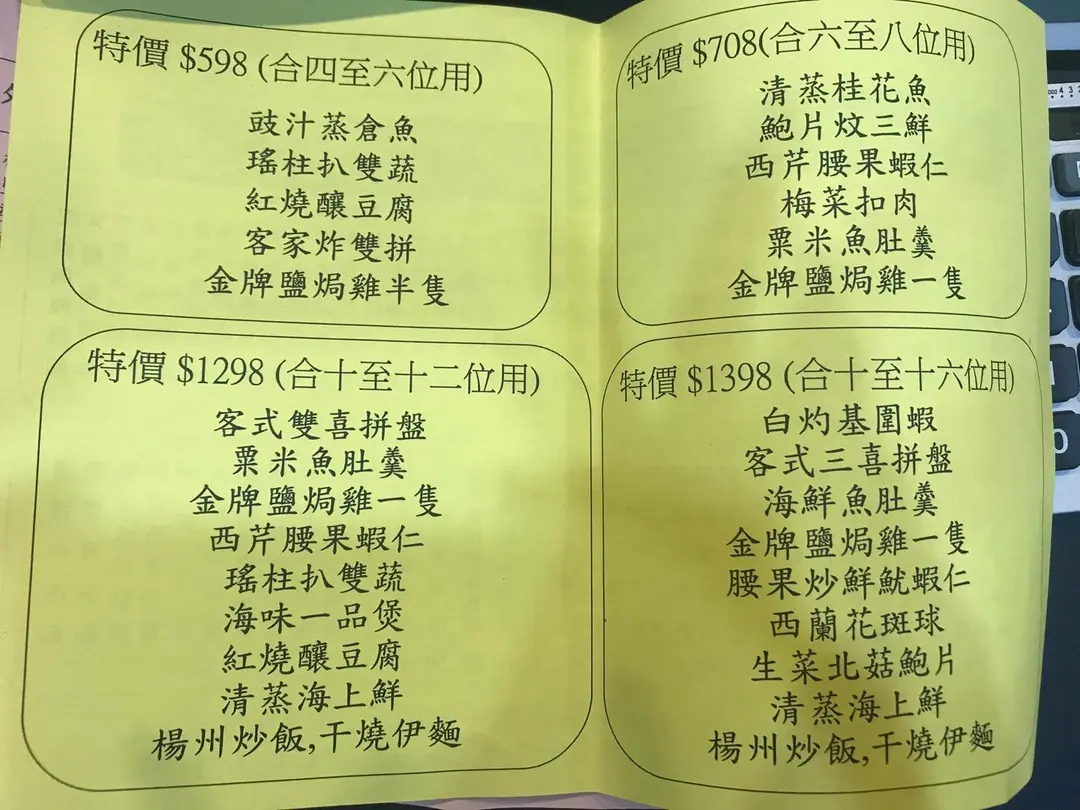 特價 $598 (合四至六位用)
豉汁蒸倉魚
瑤柱扒雙蔬
紅燒釀豆腐
客家炸雙拼
金牌鹽焗雞半隻
特價 $708(合六至八位用)
清蒸桂花魚
鮑片炆三鮮
西芹腰果蝦仁
梅菜扣肉
粟米魚肚羹
金牌鹽焗雞一隻
特價 $1298 (合十至十二位用)
客式雙喜拼盤
粟米魚肚羹
金牌鹽焗雞一隻
西芹腰果蝦仁
瑤柱扒雙蔬
海味一品煲
紅燒釀豆腐
清蒸海上鮮
楊州炒飯,干燒伊麵
特價 $1398 (合十至十六位用)
白灼基圍蝦
客式三喜拼盤
海鮮魚肚羹
金牌鹽焗雞一隻
腰果炒鮮魷蝦仁
西蘭花斑球
生菜北菇鮑片
清蒸海上鮮
楊州炒飯,干燒伊麵